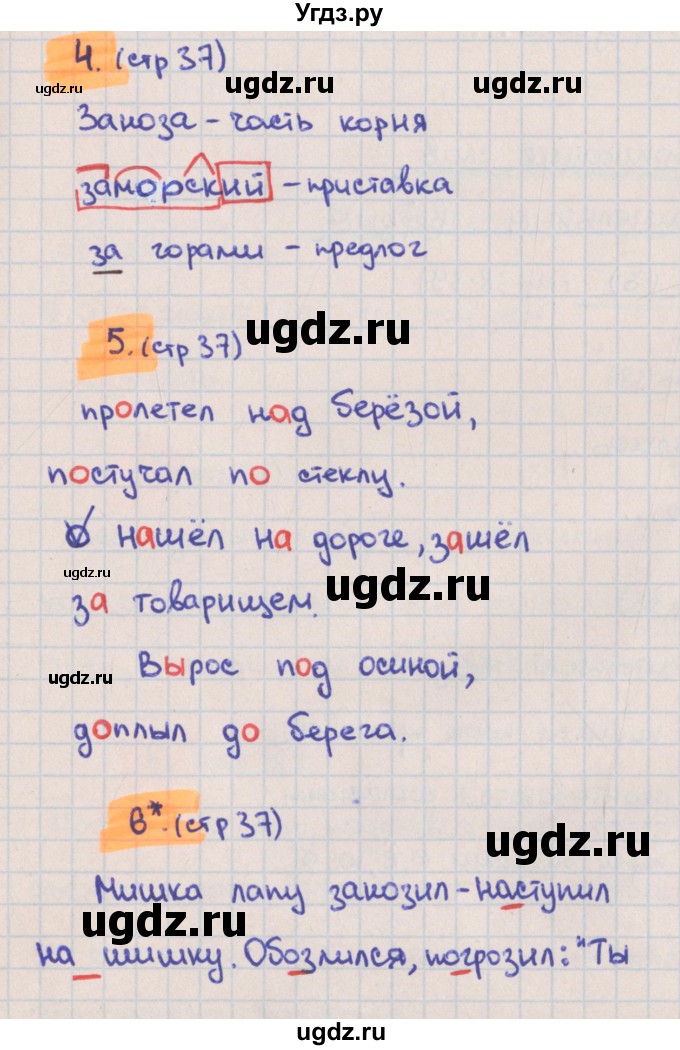 Угдз.ру
4. (стр 37)
ugdz.ru
ugdz.ru
ugdz.ru
Заноза - часть корня
заморский - приставка
за горами - предлог
5. (стр 37)
ugdz.ru
пролетел над берёзой,
постучал по стеклу.
нашёл на дороге, зашёл
ugdz.ru
ugdz.ru
за товарищем.
Вырос под осиной,
ugdz.ru
доплыл до берега.
6*. (стр 37)
ugdz.ru
Мишка лапу занозил - наступил
ugdz.ru
на шишку. Обозлился, погрозил: "Ты
ugdz.ru